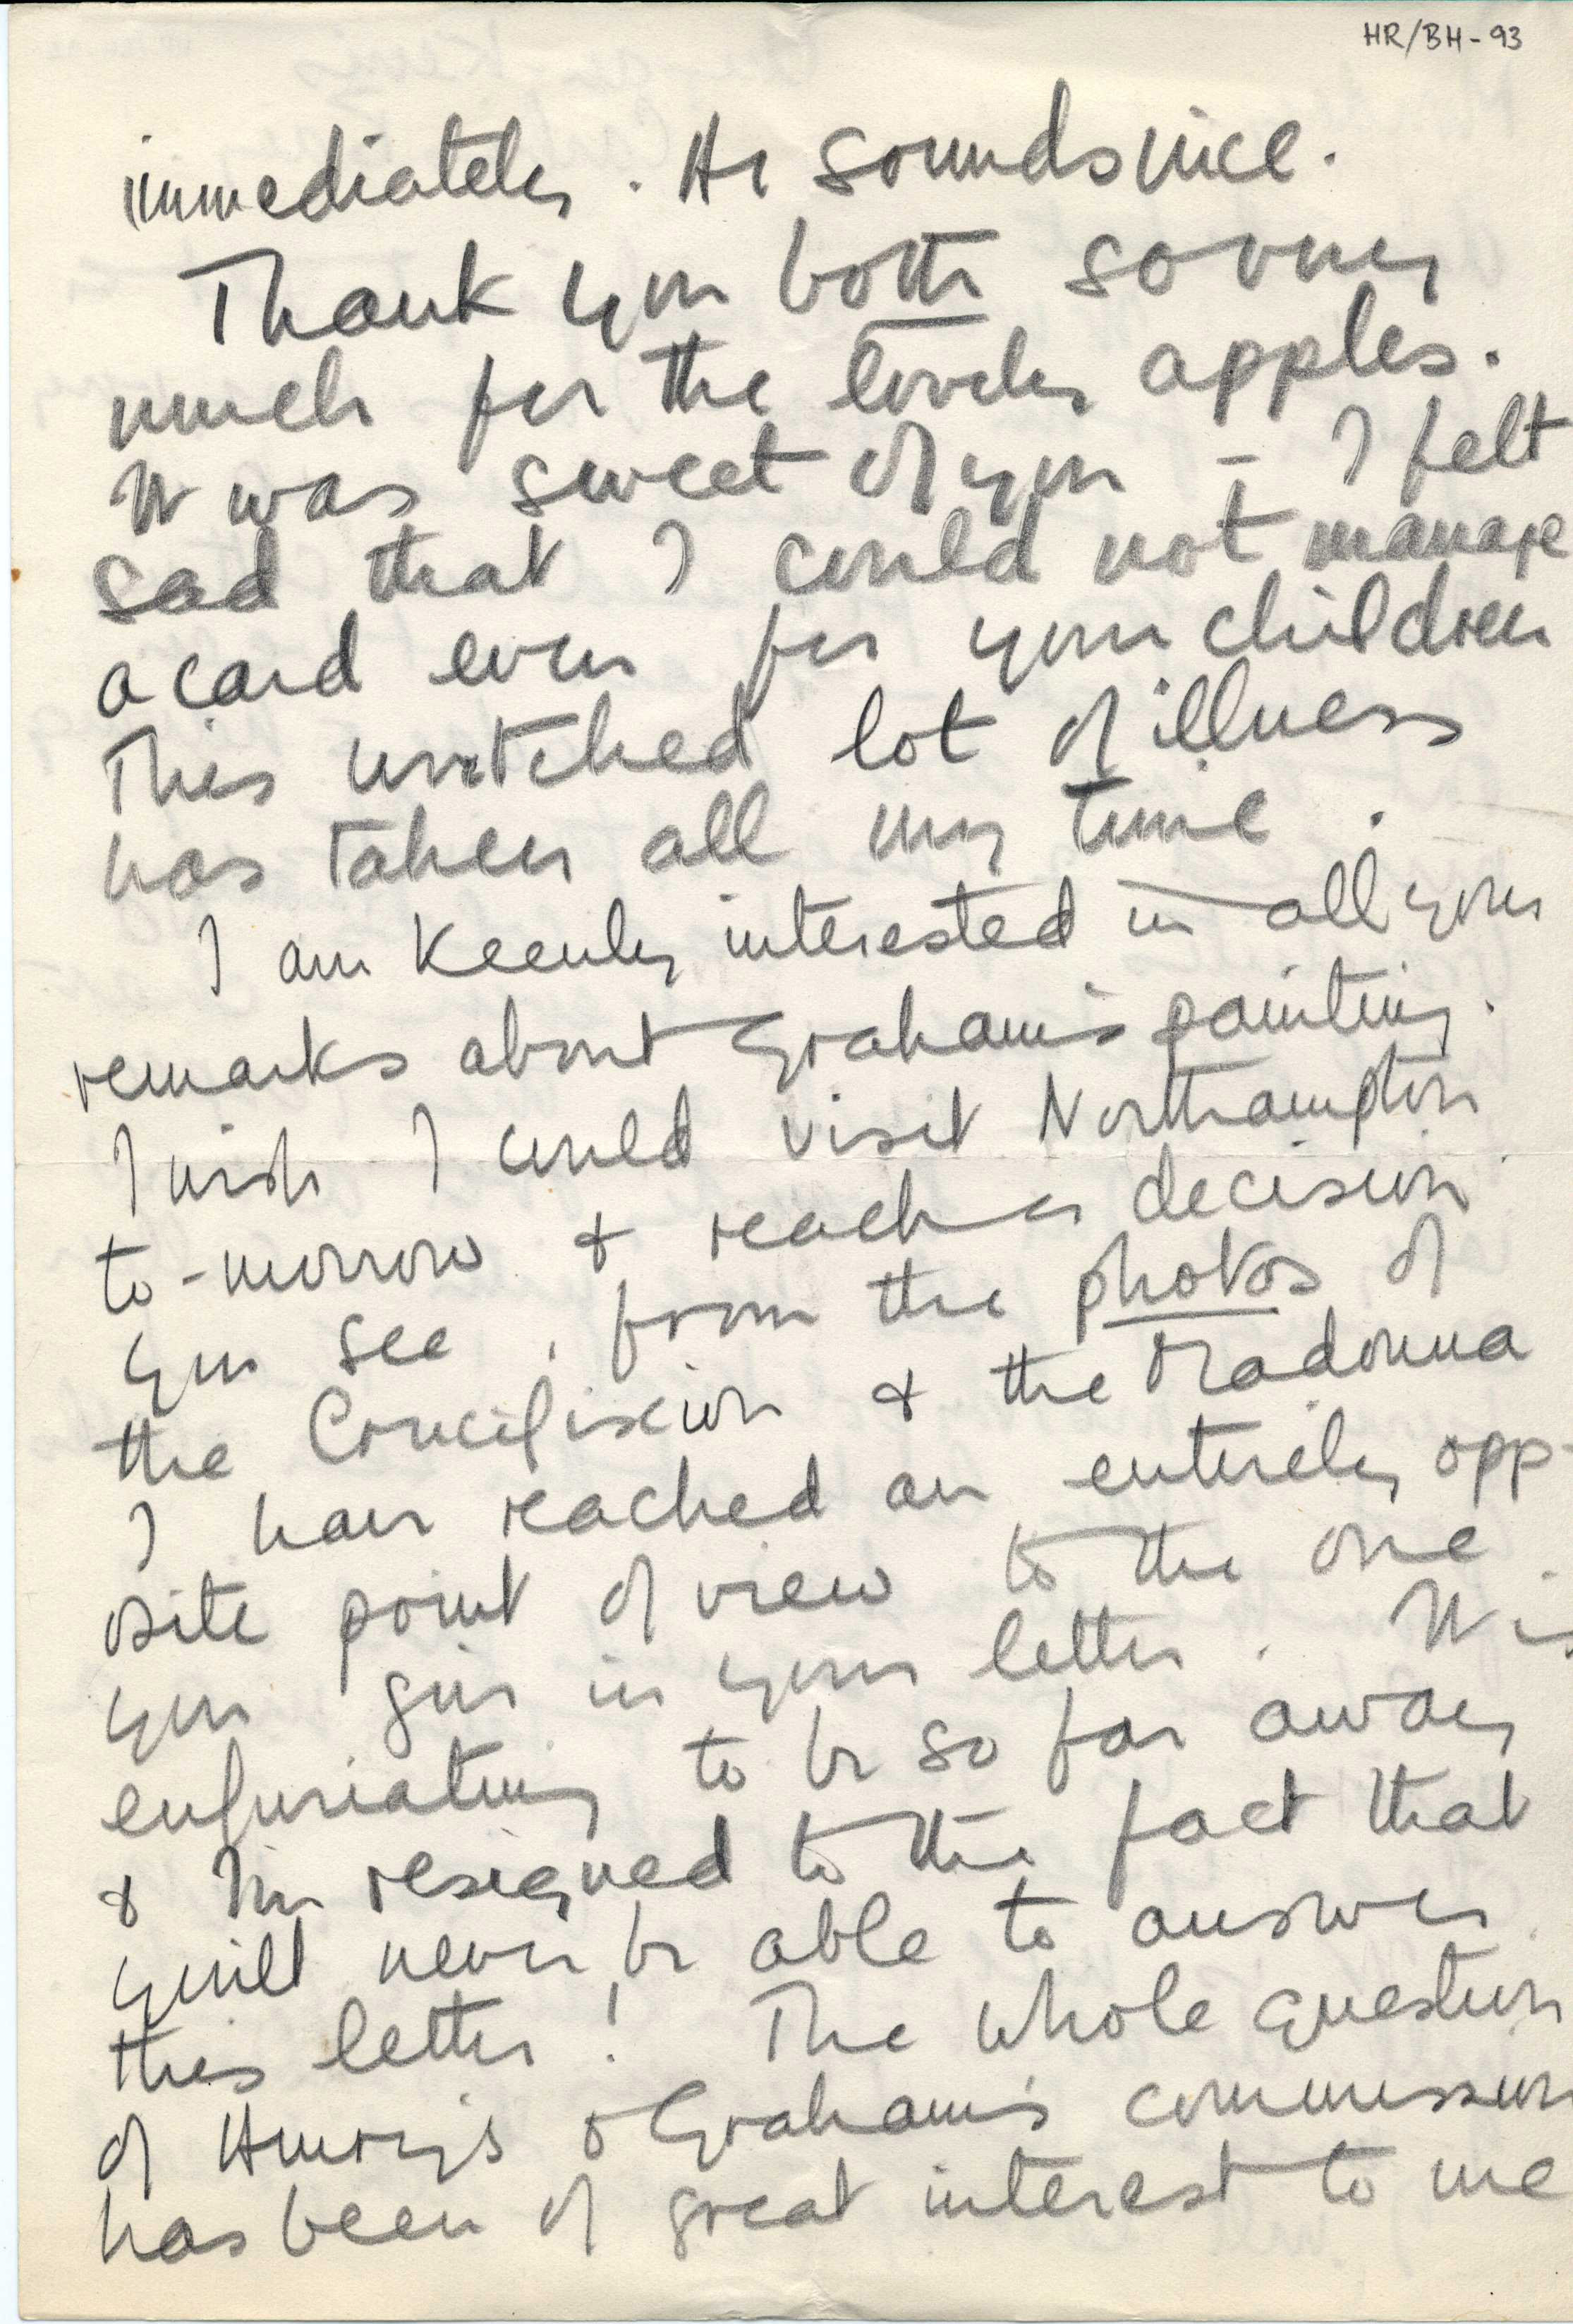 HR/BH-93
immediately. He sounds nice.
Thank you both so very
much for the lovely apples.
It was sweet of you - I felt
sad that I could not manage
a card even for your children
This wretched lot of illness
has taken all my time.
I am keenly interested in all your
remarks about Graham's painting.
I wish I could visit Northampton
to-morrow & reach a decision
You see, from the photos of
the Crucifixion & the Madonna
I have reached an entirely opp-
osite point of view to the one
you give in your letter. It is
enfuriating to be so far away
& I'm resigned to the fact that
you'll never be able to answer
this letter! The whole question
of Henry's & Graham's commission
has been of great interest to me